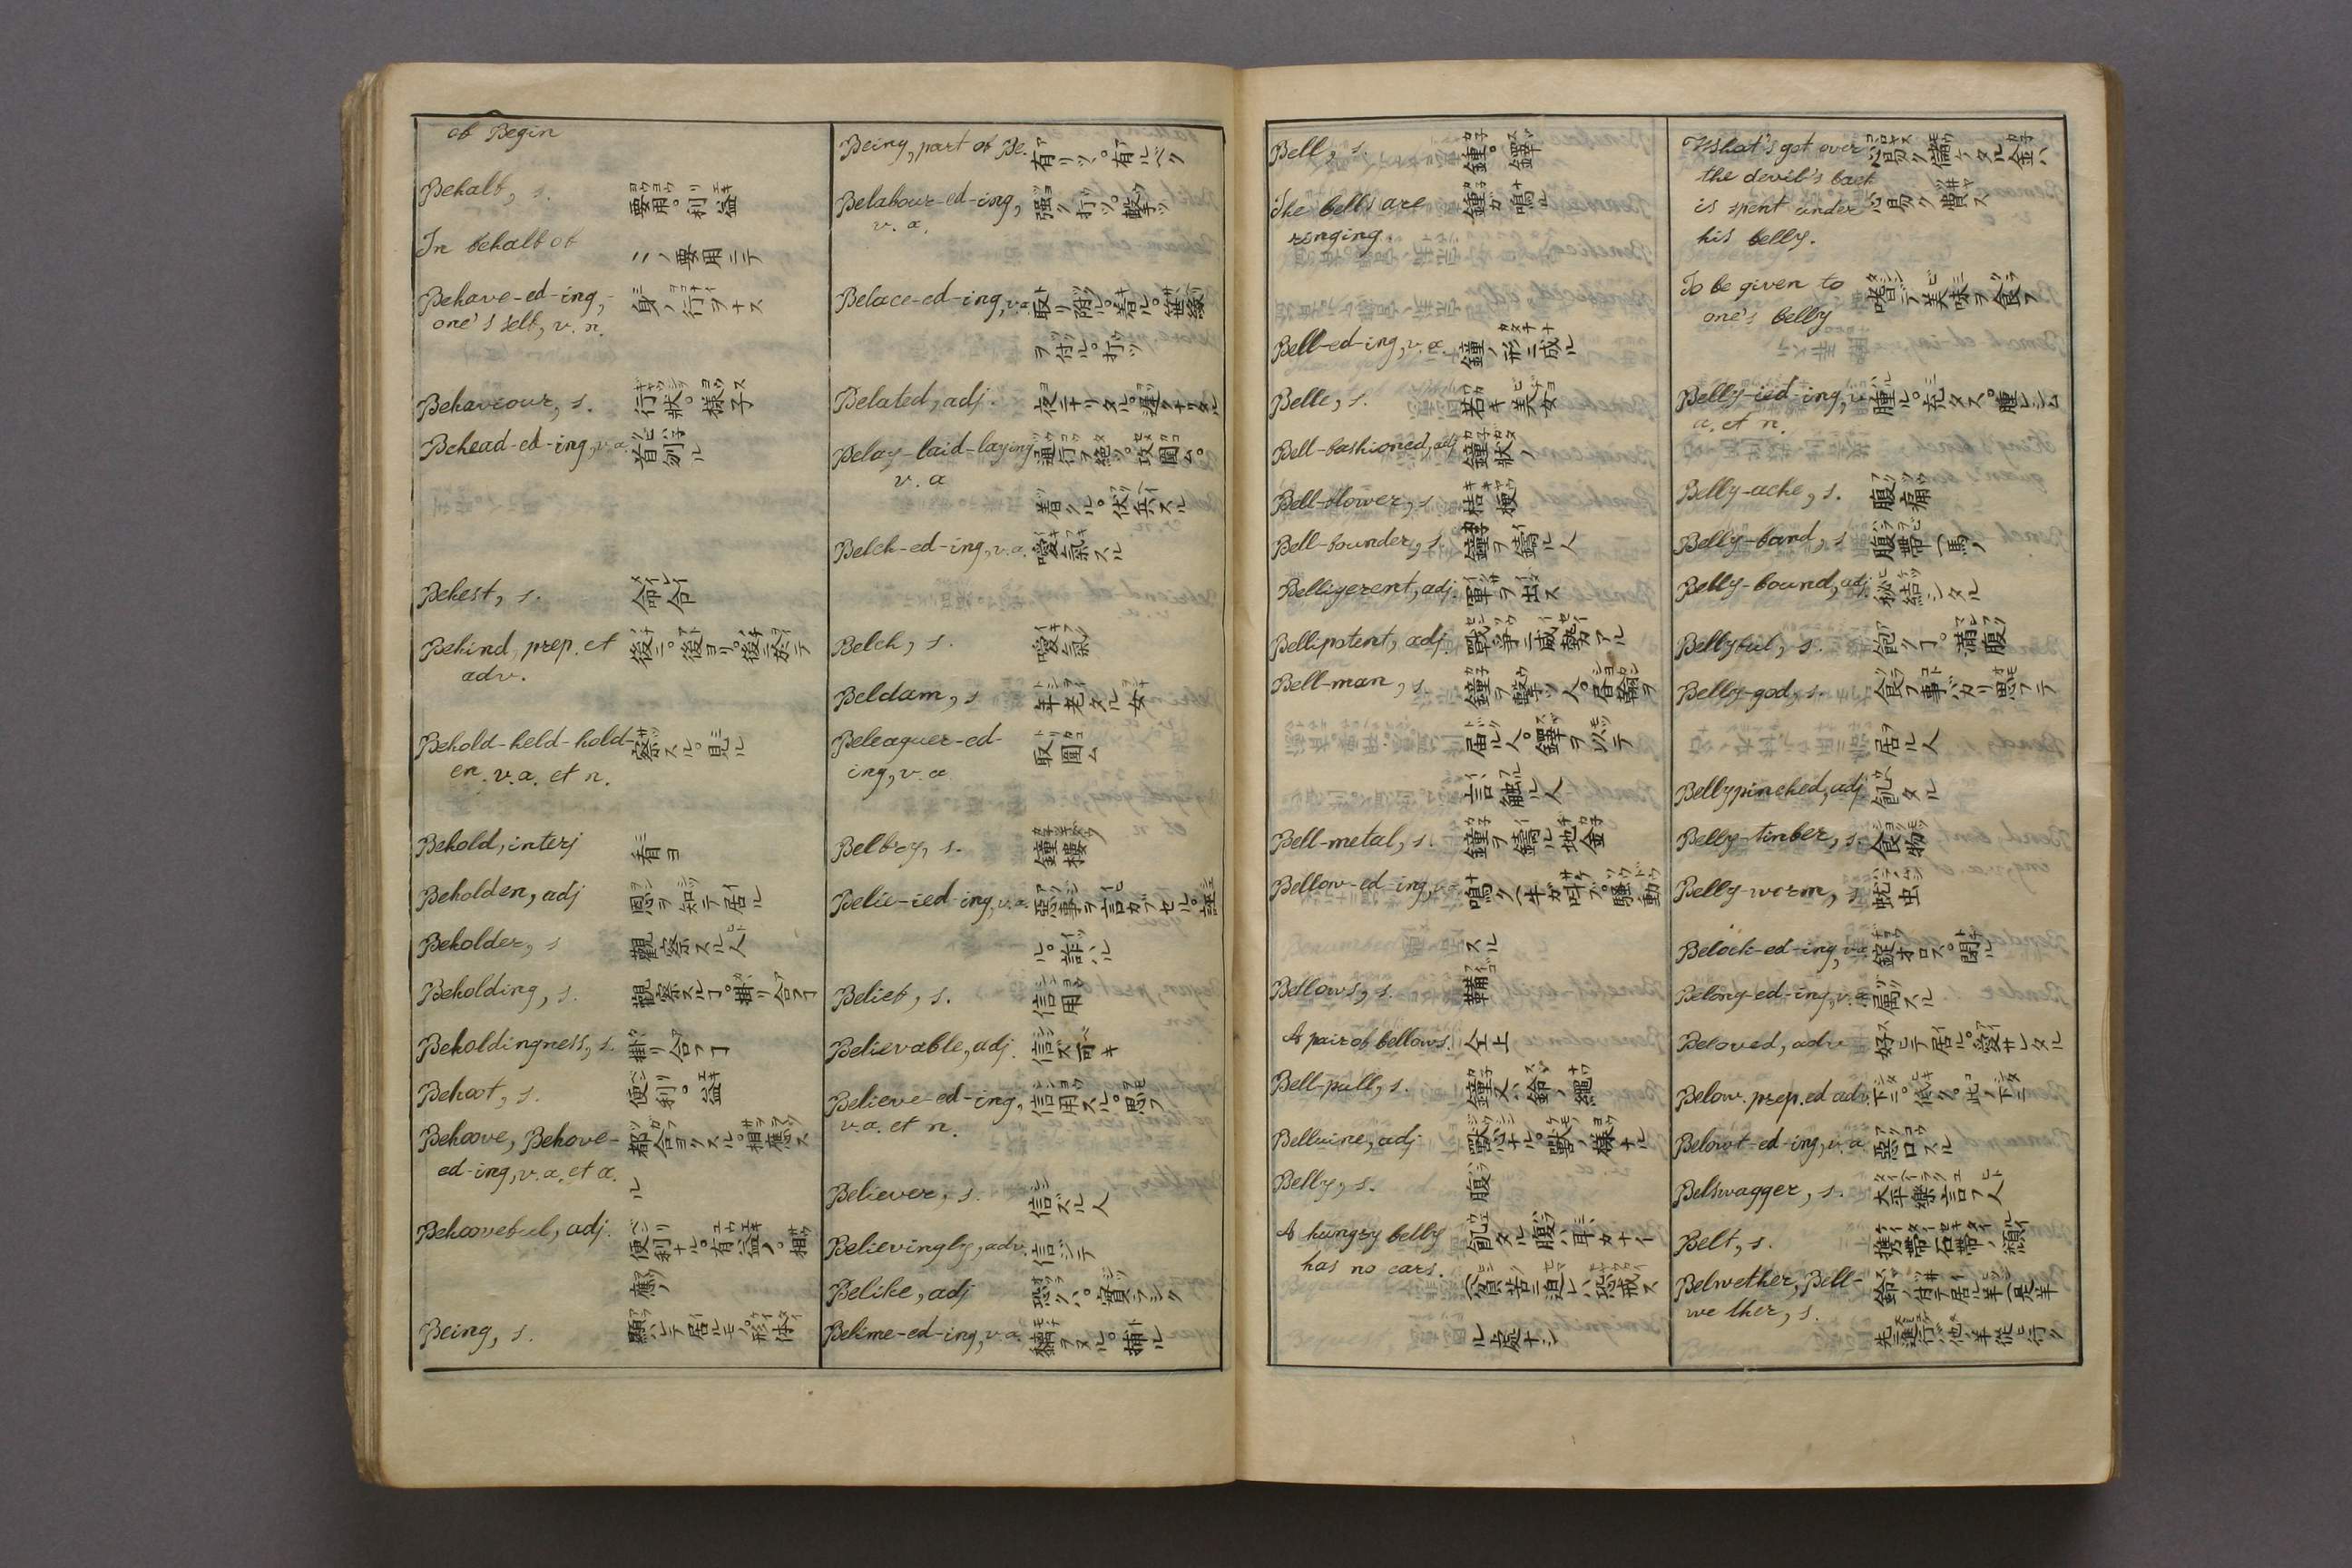 of Begin
Behalf, s. 要用。利益
In behalf of 〃ノ要用ニテ
Behave-ed-ing,- 身ノ行ヲナス
one's self, v. n.
Behaviour, s. 行狀。様子
Behead-ed-ing, v.a. 首刎ル
Behest, s. 命令
Behind, prep. et 後ニ。後ヨリ。後ニ於テ
adv.
Behold-held-hold- 察スル。見ル
en. v.a. et n.
Behold, interj 看ヨ
Beholden, adj 恩ヲ知テ居ル
Beholder, s 觀察スル人
Beholding, s. 觀察スルヿ。掛リ合フヿ
Beholdingness, s. 掛リ合フヿ
Behoof, s. 便利。益
Behoove, Behove- 都合ヨクスル。相應ス
ed-ing, v.a. et a. ル
Behooveful, adj. 便利ナル。有益ノ。相
應ノ
Being, s. 顯レテ居ルモノ。形体
Being, part of Be. 有リツヽ。有ルベク
Belabour-ed-ing, 强ク打ツ。撃ツ
v. a.
Belace-ed-ing, v.a. 取リ附ル。着ル。笹縁
ヲ付ル。打ツ
Belated, adj. 夜ニナリタル。遅クナリタル
Belay-laid-laying 通行ヲ絶ツ。攻圍ム。
v. a 着クル。伏兵スル
Belch-ed-ing, v.a. 噯氣スル
Belch, s. 噯氣
Beldam, s 年老タル女
Beleaguer-ed- 取圍ム
ing, v. a
Belfry, s. 鐘樓
Belie-ied-ing, v.a. 惡事ヲ言カブセル。誣
ル。詐ル
Belief, s. 信用
Believable, adj. 信ズ可キ
Believe-ed-ing, 信用スル。思フ
v.a. et n.
Believer, s. 信ズル人
Believingly, adv. 信ジテ
Belike, adj 恐クハ。實ラシク
Belime-ed-ing, v.a. 黐ヲヌル。捕ル
Bell, s. 鐘。鐸
The bells are 鐘ガ鳴ル
ringing.
Bell-ed-ing, v.a. 鐘ノ形ニ成ル
Belle, s. 若キ美女
Bell-fashioned, adj 鐘狀ノ
Bell-flower, s 桔梗
Bell-founder, s. 鐘ヲ鑄ル人
Belligerent, adj. 軍ヲ出ス
Bellipotent, adj. 戰爭ニ威勢アル
Bell-man, s. 鐘ヲ撃ツ人。書翰ヲ
届ル人。鐸ヲ以テ
言触ル人
Bell-metal, s. 鐘ヲ鑄ル地金
Bellow-ed-ing, v.n 鳴ク(牛ガ)叫ブ。騒動
スル
Bellows, s. 鞴
A pair of bellows. 仝上
Bell-pull, s. 鐘又ハ鈴ノ繩
Belluine, adj. 獸ナル。獸ノ様ナル
Belly, s. 腹
A hungry belly 飢タル腹ハ耳ガナイ
has no ears. (貧苦ニ迫レハ恐戒ス
ル處ナシ
What's got over 容易ク儲ケタル金ハ
the devil's back 容易ク費ス
is spent under
his belly.
To be given to 嗜ンデ美味ヲ食フ
one's belly
Belly-ied-ing, v. 腫ル。充タス。腫レシム
a. et n.
Belly-ache, s. 腹痛
Belly-band, s 腹帶(馬ノ
Belly-bound, adj. 秘結シタル
Bellyful, s. 飽クヿ。滿腹
Belly-god, s. 食フ事バカリ思フテ
居ル人
Bellypinched, adj. 飢タル
Belly-timber, s. 食物
Belly-worm, s 蚘虫
Belock-ed-ing, v.a 錠オロス。閉ル
Belong-ed-ing, v.a 屬スル
Beloved, adv 好ヒテ居ル。愛サレタル
Below. prep. ed adv. 下ニ。低ク。此ノ下ニ
Belowt-ed-ing, v.a 惡口スル
Belswagger, s. 太平樂言フ人
Belt, s. 携帶石帶ノ類
Belwether, Bell- 鈴ノ付テ居ル羊(是羊
wether, s. 先ニ進行バ他ノ羊從ヒ行ク